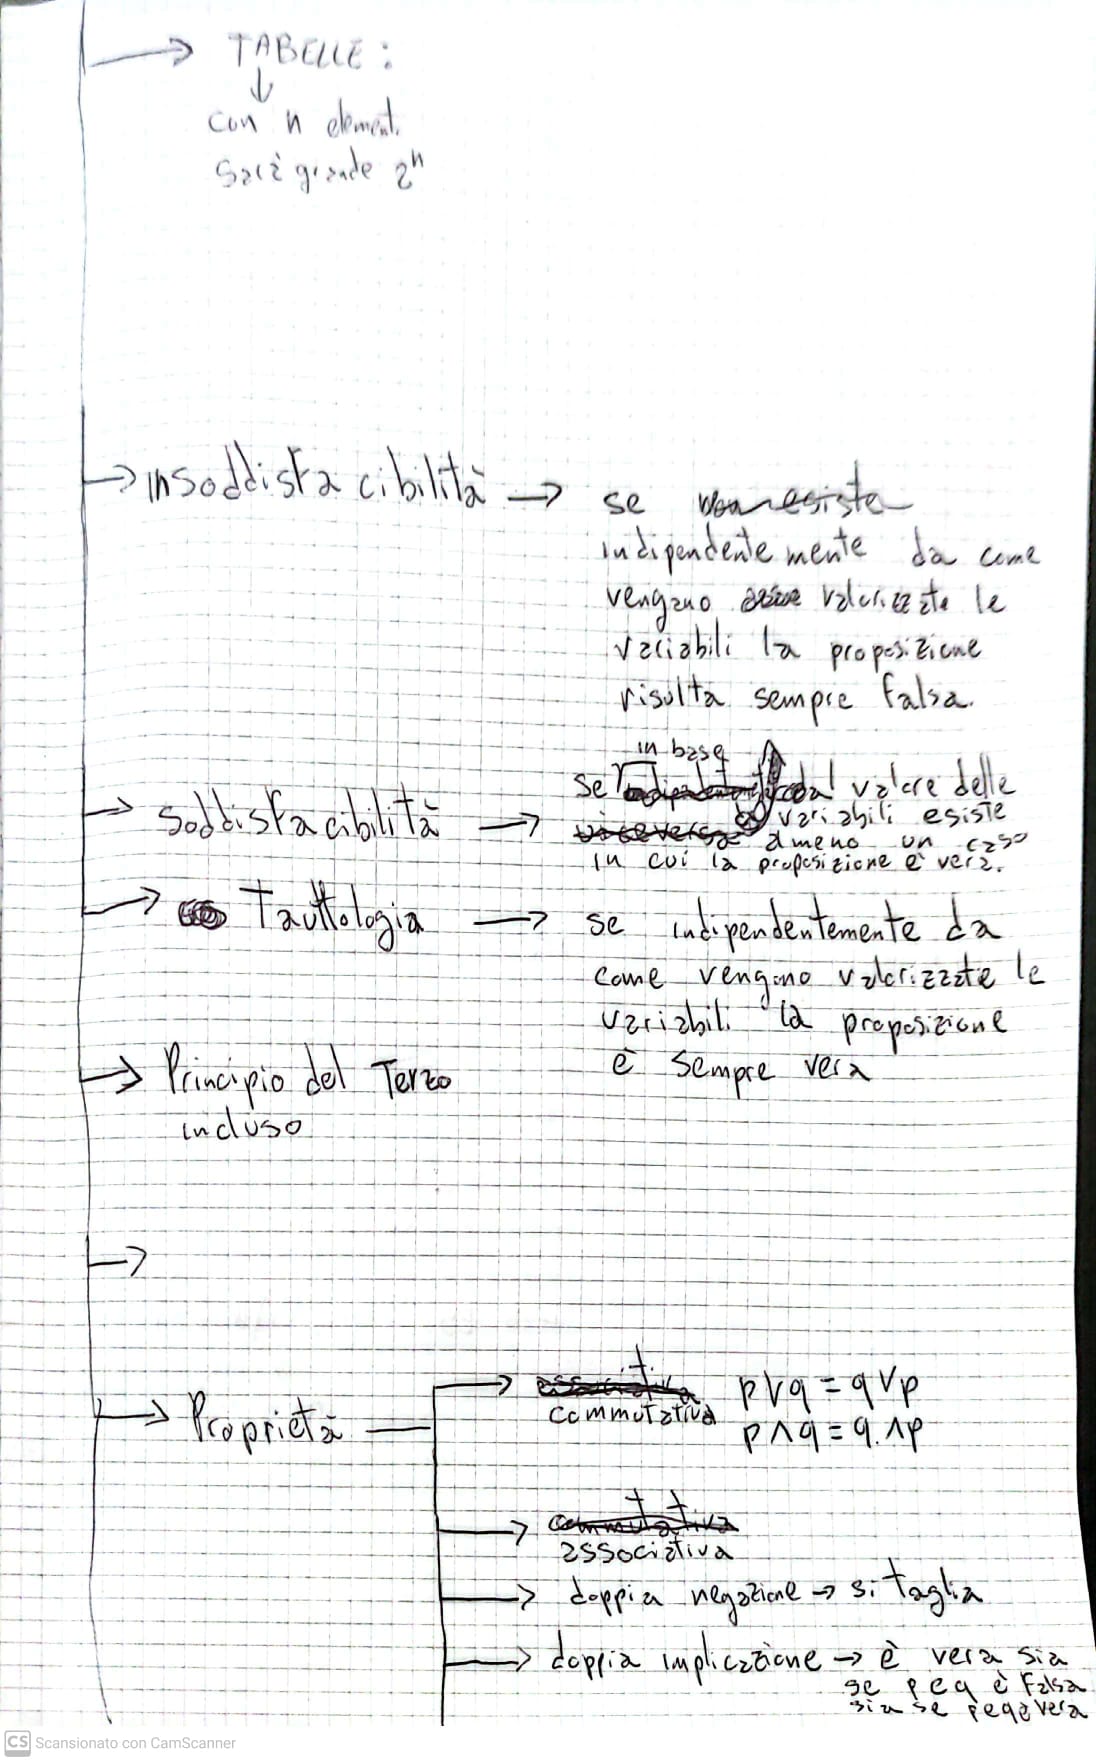 → TABELLE:
↓
con n elementi
sarà grande 2ⁿ
→ insoddisfacibilità → se
indipendentemente da come
vengano valorizzate le
variabili la proposizione
risulta sempre falsa.
in base
→ soddisfacibilità → se al valore delle
variabili esiste
ameno un caso
in cui la proposizione è vera.
→ Tauttologia → se indipendentemente da
come vengono valorizzate le
variabili la proposizione
è sempre vera
→ Principio del Terzo
incluso
→
→ Proprietà → commutativa p∨q = q∨p
p∧q = q.∧p
→ associativa
→ doppia negazione → si taglia
→ doppia implicazione → è vera sia
se p e q è falsa
sia se p e q è vera
CS Scansionato con CamScanner